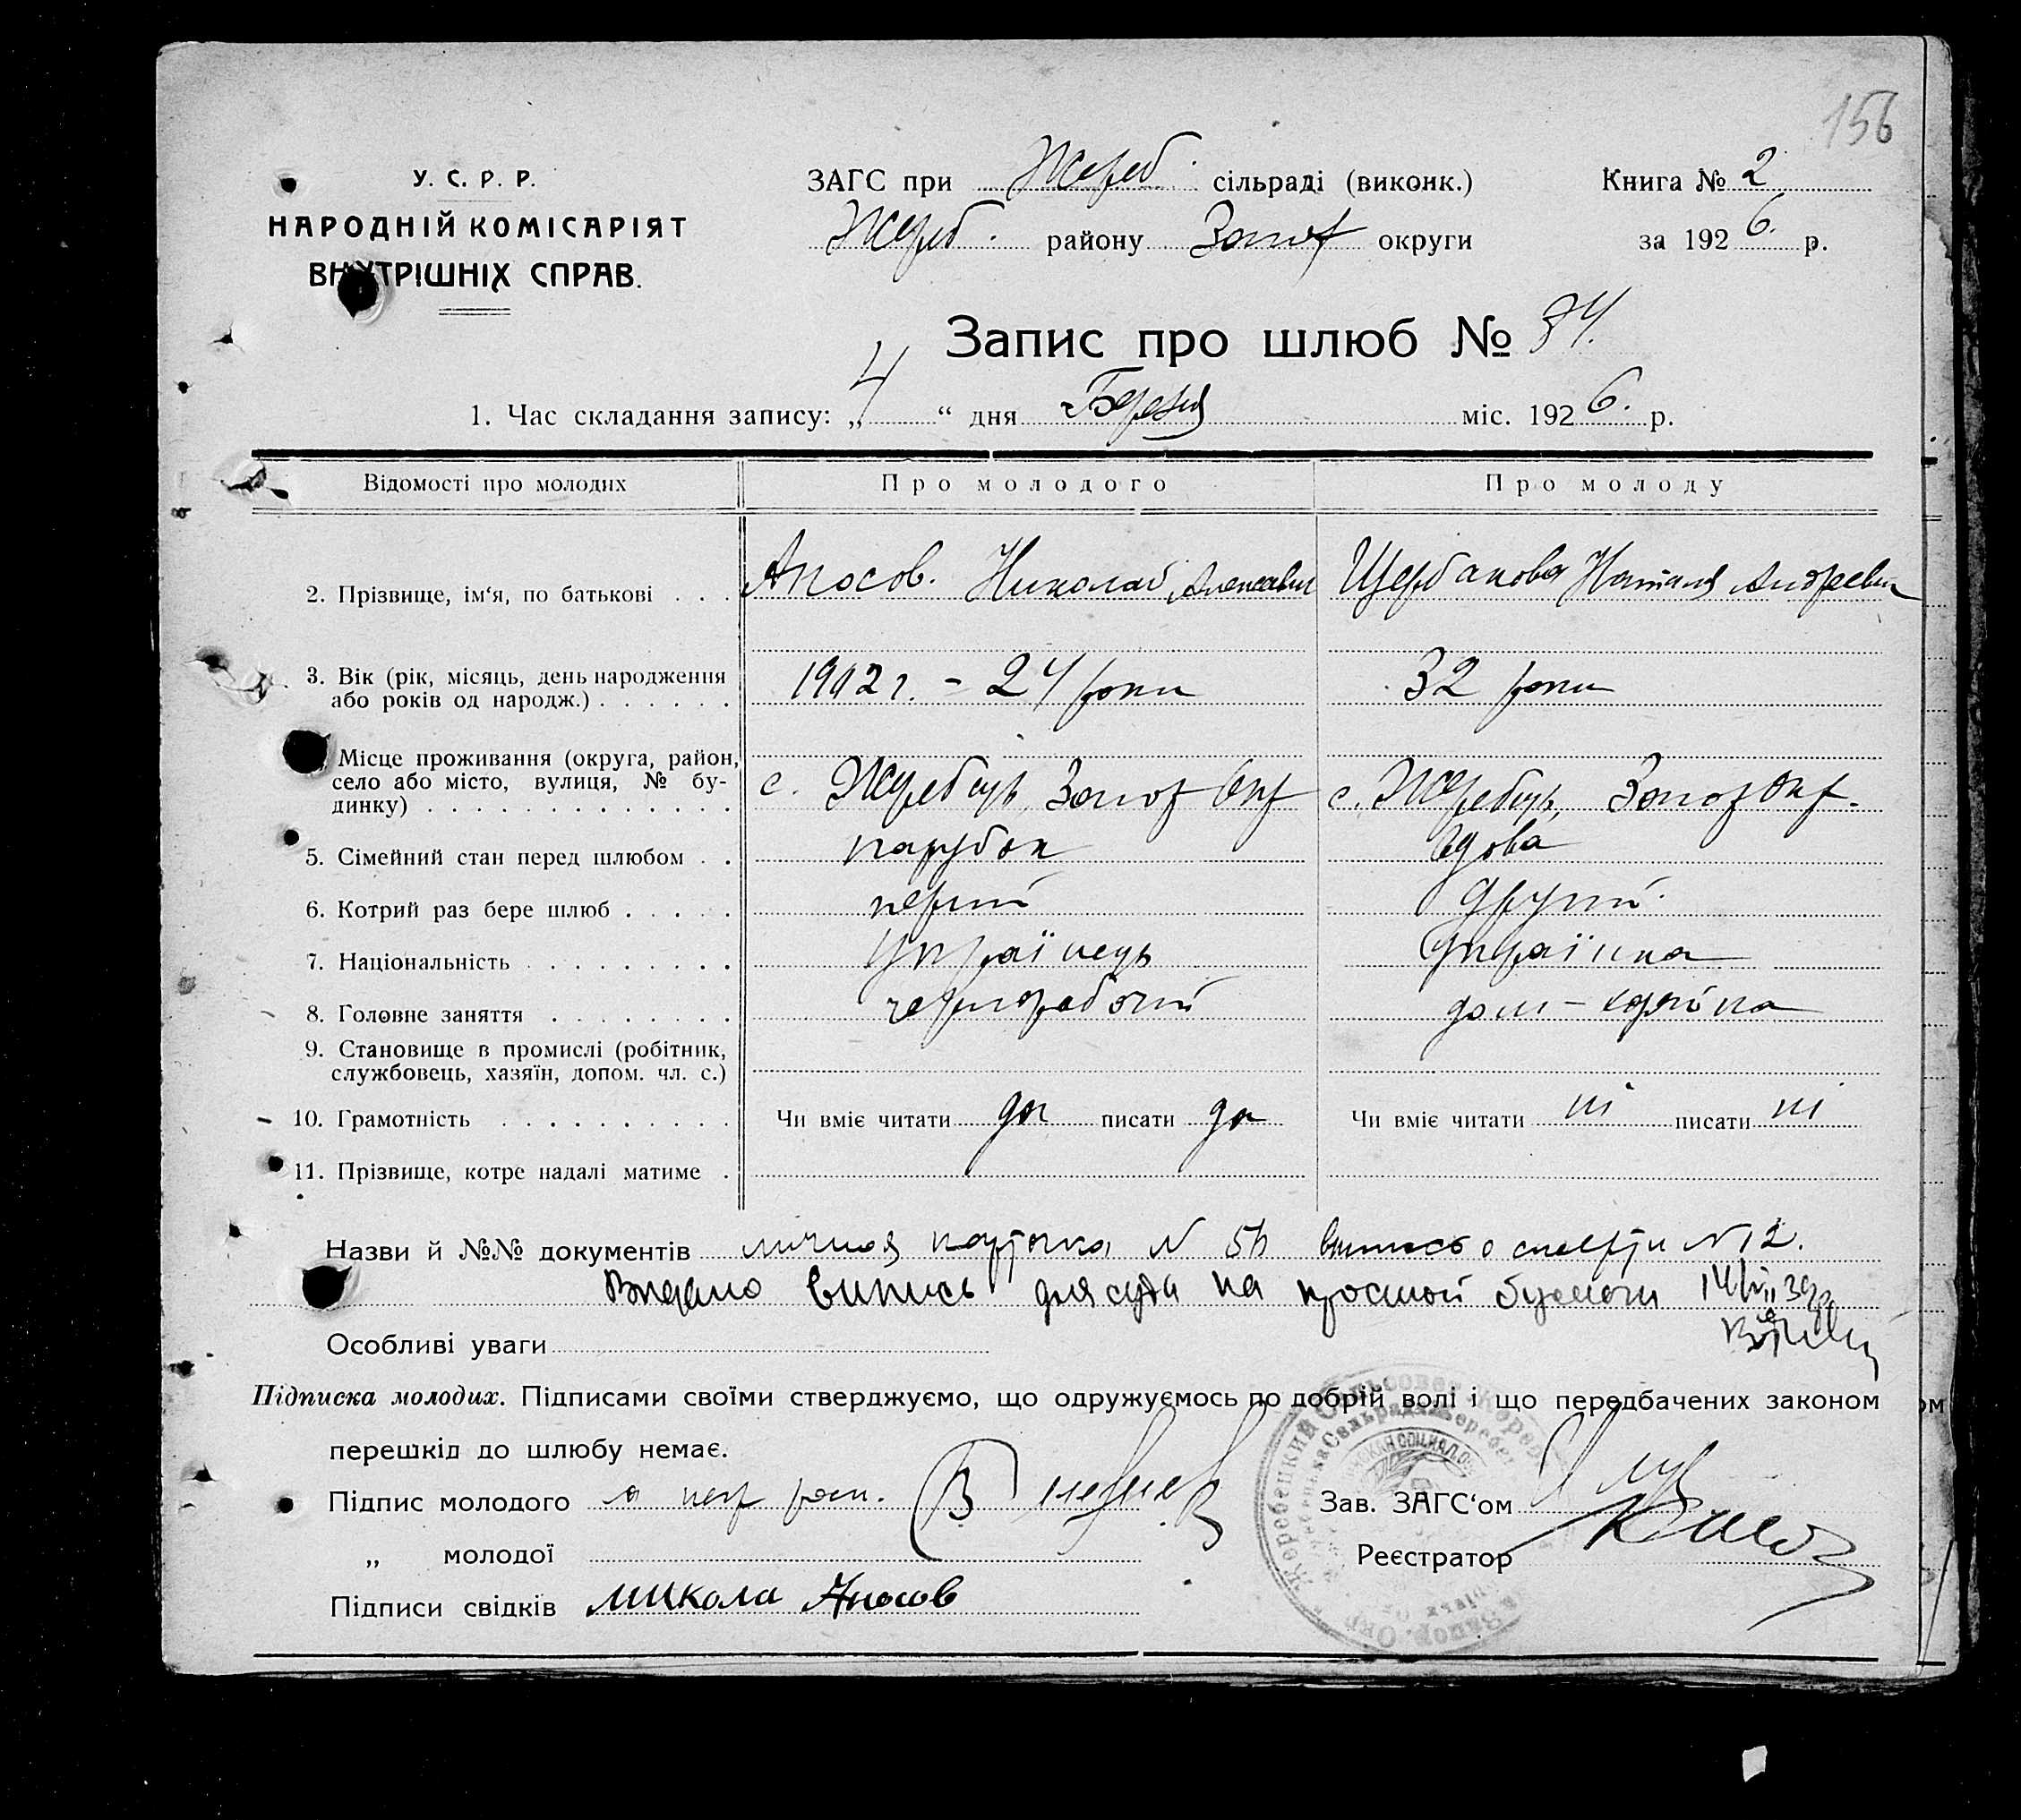 156
У. С. Р. Р.
НАРОДНІЙ КОМІСАРІЯТ
ВНУТРІШНІХ СПРАВ.
ЗАГС при Жереб. сільраді (виконк.) Книга № 2
Жереб. району Запор округи за 1926. р.
Запис про шлюб № 84.
1. Час складання запису: „4“ дня Березня міс. 1926. р.
Відомості про молодих Про молодого Про молоду
2. Прізвище, ім‘я, по батькові . . . Аносов. Николай Алексеевич Щербакова Наталя Андреевн
3. Вік (рік, місяць, день народження
або років од народж.) . . . . . . 1902 г. - 24 роки 32 роки
Місце проживання (округа, район,
село або місто, вулиця, № бу-
динку) . . . . . . . . . . . . с. Жеребець, Запор Окр с. Жеребець, Запор Окр.
5. Сімейний стан перед шлюбом . . парубок вдова
6. Котрий раз бере шлюб . . . . . перший другий
7. Національність . . . . . . . . . українець українка
8. Головне заняття . . . . . . . . чернорабочий дом-хозяйка
9. Становище в промислі (робітник,
службовець, хазяїн, допом. чл. с.)
10. Грамотність . . . . . . . . . . Чи вміє читати да писати да Чи вміє читати ні писати ні
11. Прізвище, котре надалі матиме .
Назви й №№ документів личная карточка N 56 выпись о смерти N 12.
Видано випись для суда на простой бумаги
Особливі уваги
Підписка молодих. Підписами своїми стверджуємо, що одружуємось по добрій волі і що передбачених законом
перешкід до шлюбу немає.
Підпис молодого а негр росп. Зав. ЗАГС‘ом
„ молодої Реєстратор
Підписи свідків Микола Аносов